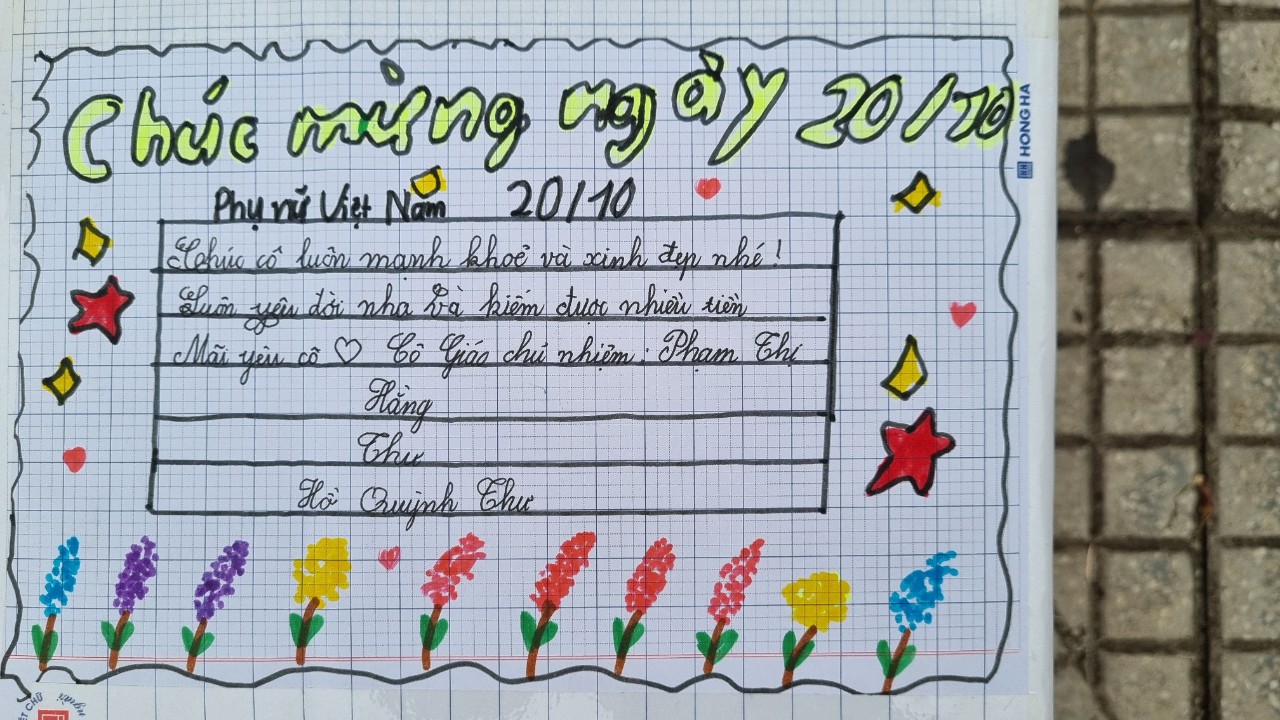 Chúc mừng ngày 20/10
HONG HA
Phụ nữ Việt Nam 20/10
Chúc cô luôn mạnh khoẻ và xinh đẹp nhé!
Luôn yêu đời nha và kiếm được nhiều tiền
Mãi yêu cô ♡ Cô Giáo chủ nhiệm: Phạm Thị
Hằng
Thư
Hồ Quỳnh Thư